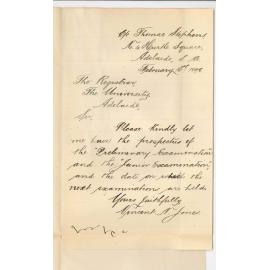 c/o Thomas Stephens
Hurtle Square,
Adelaide, S. A.
February
The Registrar
The University,
Adelaide.
Sir,
Please kindly let
me have the prospectus of
the "Preliminary Examination"
and the "Junior Examination",
and the date on which the
next examination are held.
Yours faithfully
Vincent N. Jones